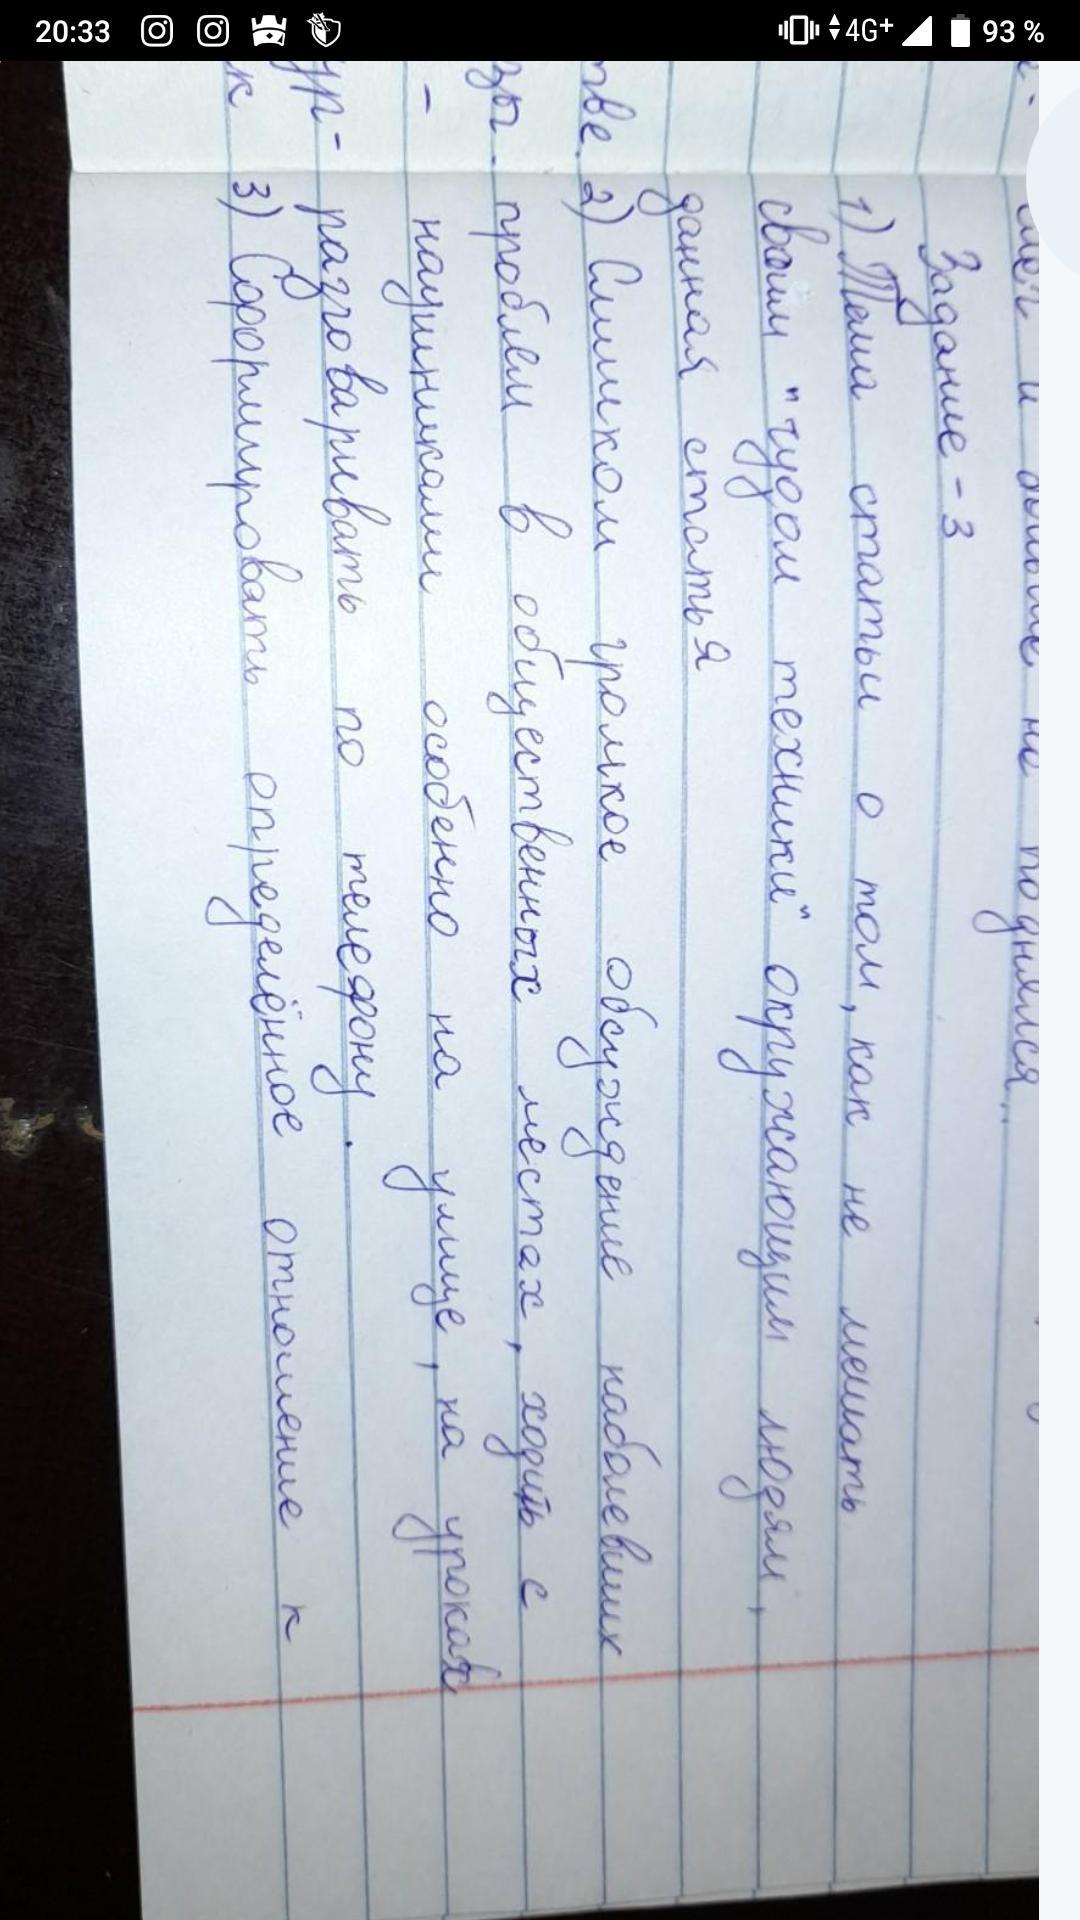 20:33 4G+ 93 %
и больше не поднялся...
Задание - 3
1) Тема статьи о том, как не мешать
своим "чудом техники" окружающим людям,
данная статья
тве. 2) Слишком громкое обсуждение наболевших
зы. проблем в общественных местах, ходить с
- наушниками особенно на улице, на уроках
ур- разговаривать по телефону.
к 3) Сформировать определённое отношение к